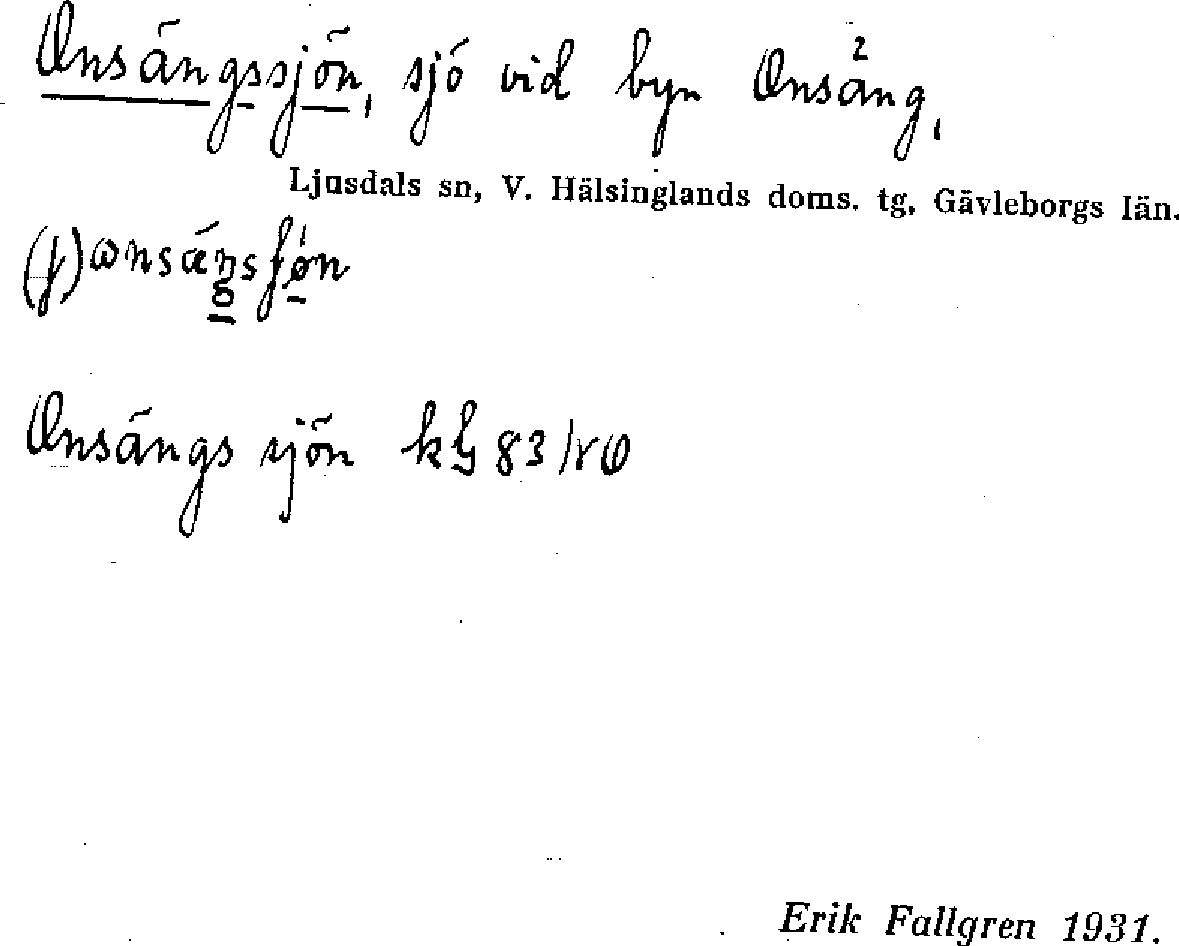 Onsängssjön, sjö vid byn Onsäng,
Ljusdals sn, V. Hälsinglands doms. tg, Gävleborgs län.
Onsängs sjön 83
Erik Fallgren 1931.